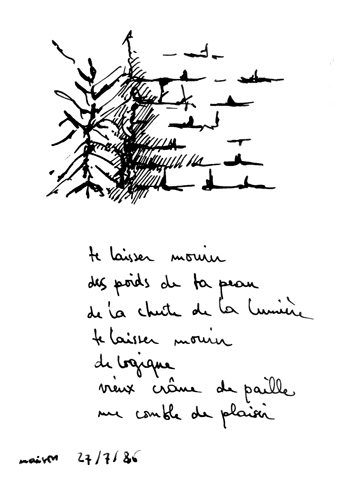 te laisser mourir
des poids de ta peau
de la chute de la lumière
te laisser mourir
de logique
vieux crâne de paille
me comble de plaisir
maison 27/7/86